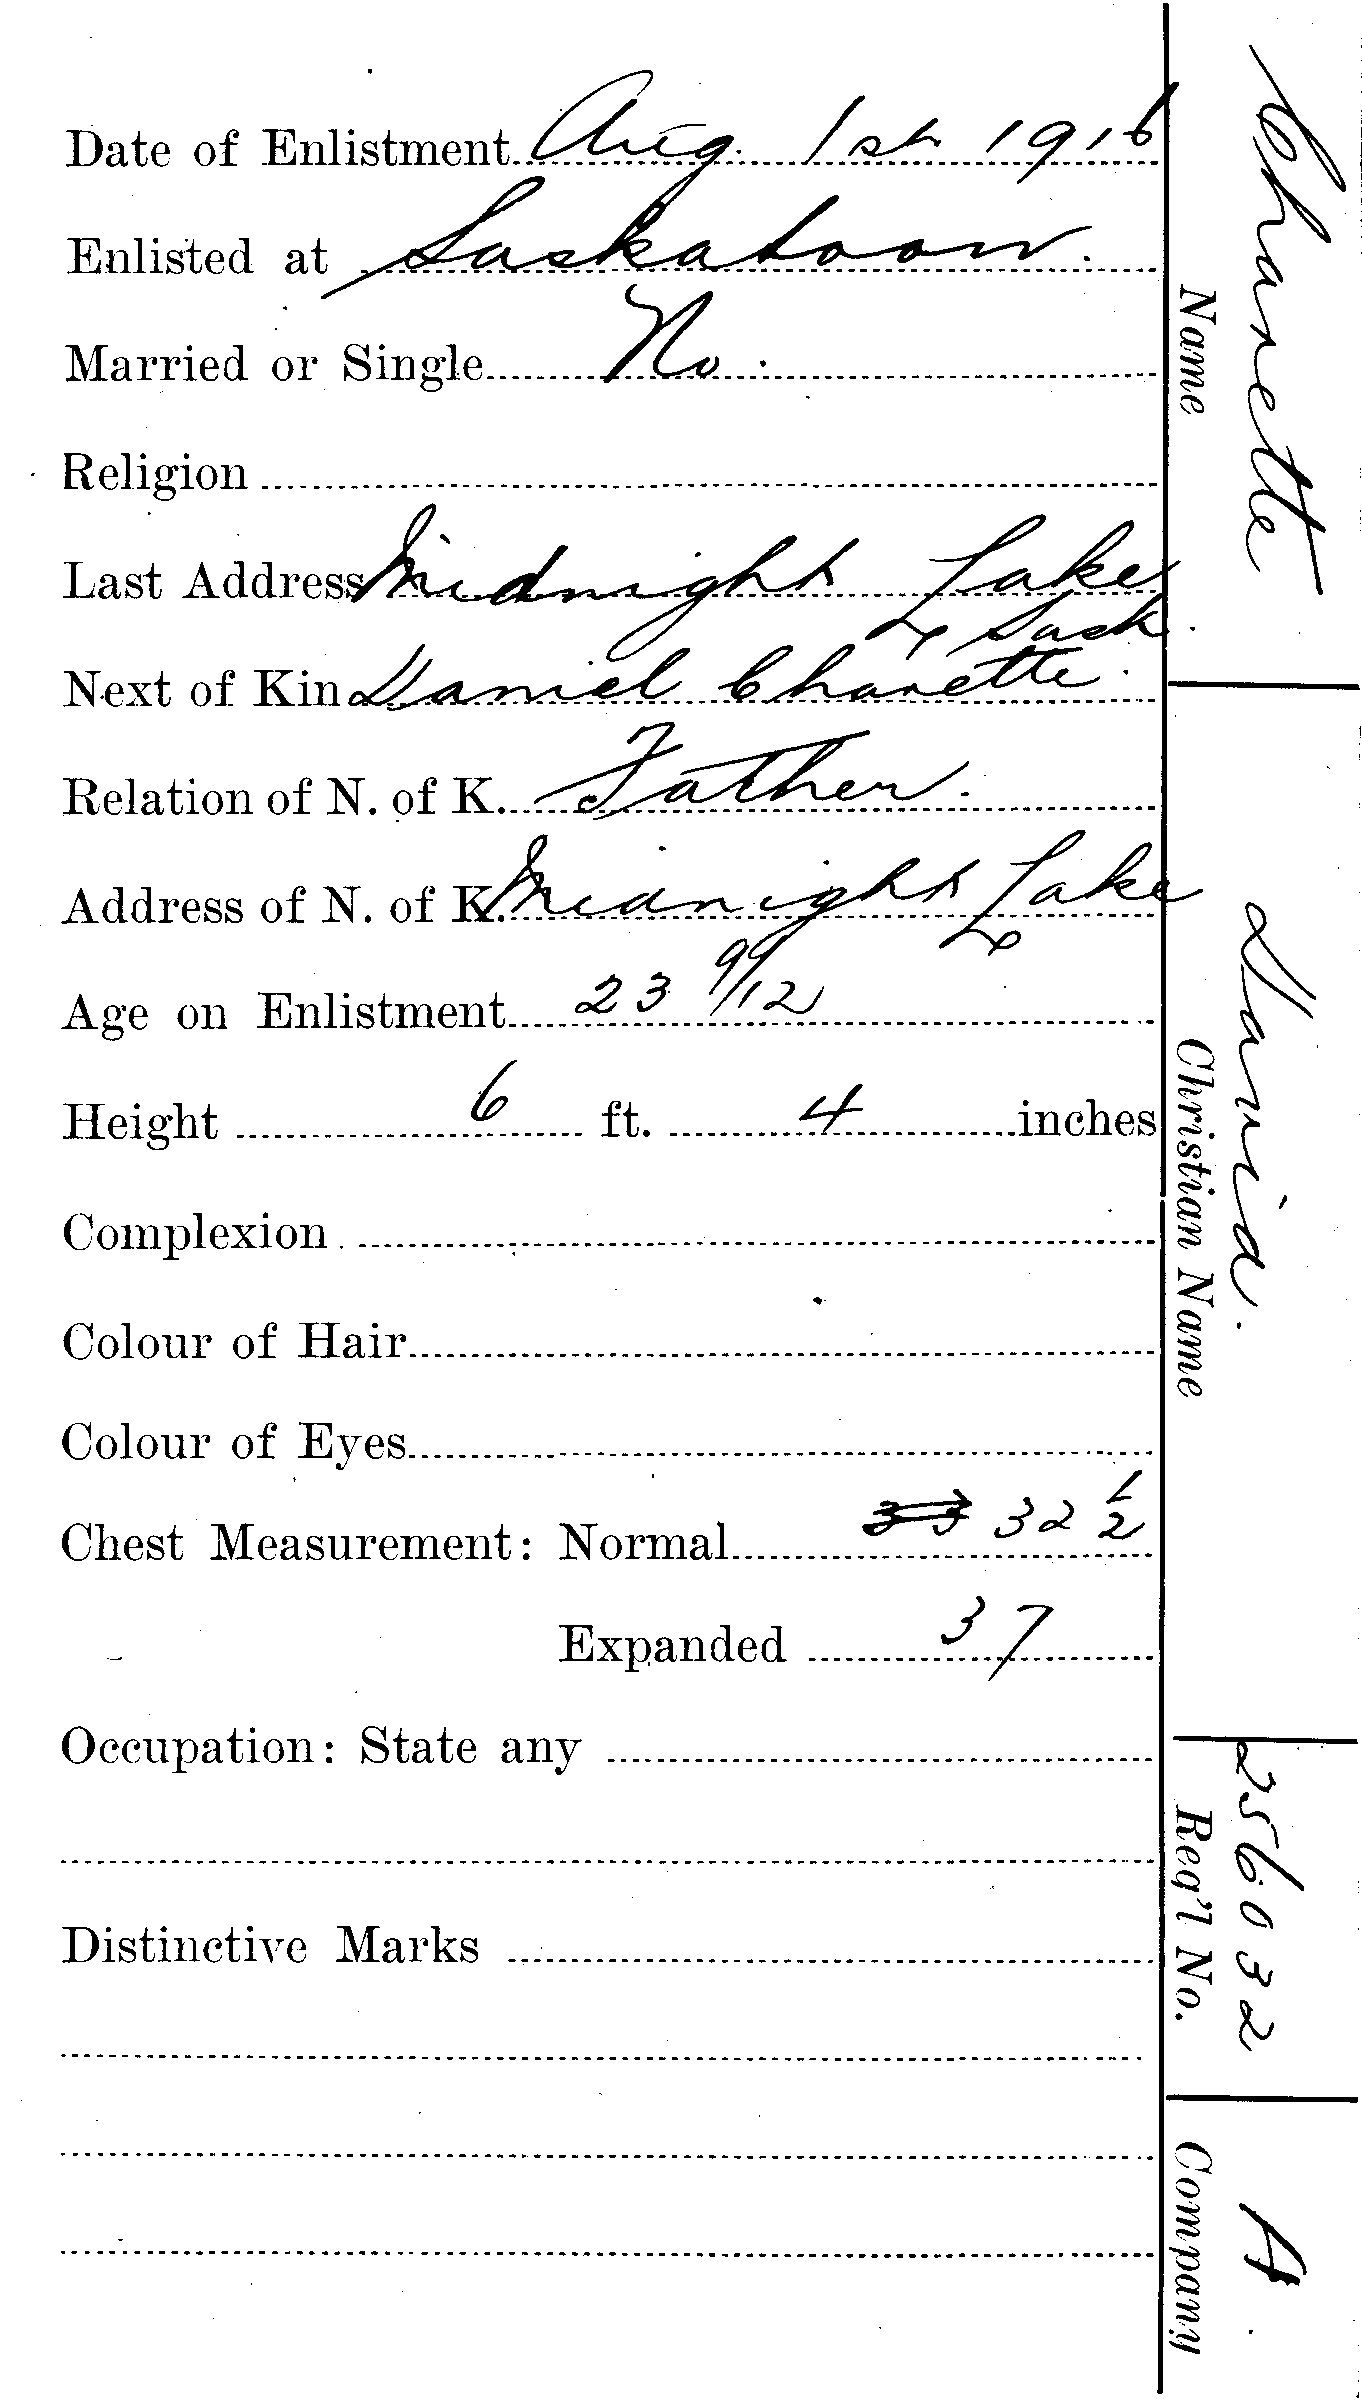 Date of Enlistment Aug. 1st 1916
Enlisted at Saskatoon.
Married or Single No.
Religion
Last Address Midnight Lake
Sask.
Next of Kin Daniel Charette.
Relation of N. of K. Father.
Address of N. of K. Midnight Lake
Age on Enlistment 23 9/12
Height 6 ft. 4 inches
Complexion
Colour of Hair
Colour of Eyes
Chest Measurement: Normal 33 32 1/2
Expanded 37
Occupation: State any
Distinctive Marks
Charette
Name
David.
Christian Name
256032
Reg'l No.
A.
Company